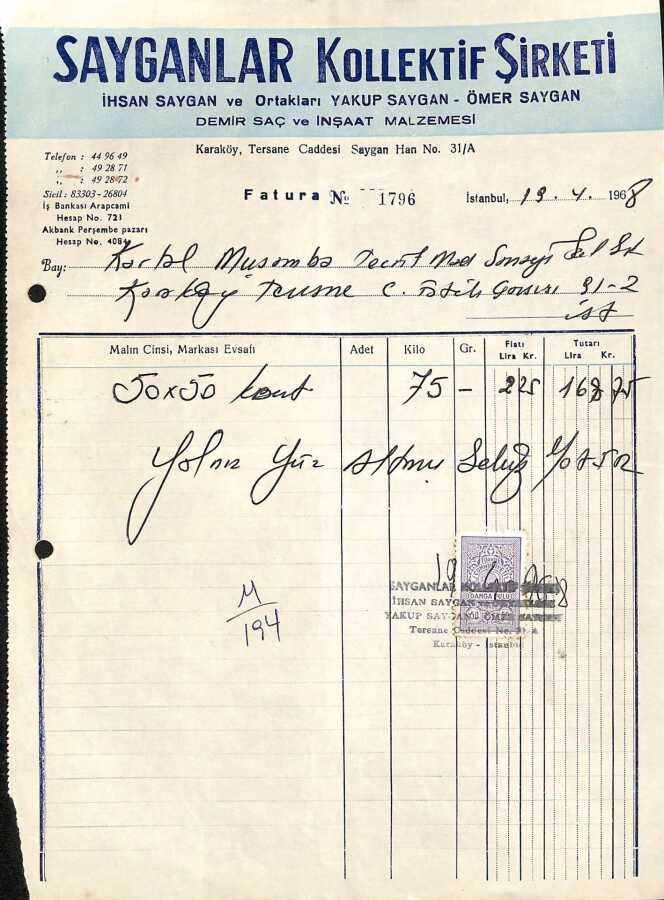 SAYGANLAR KOLLEKTİF ŞİRKETİ
İHSAN SAYGAN ve Ortakları YAKUP SAYGAN - ÖMER SAYGAN
DEMİR SAÇ ve İNŞAAT MALZEMESİ
Karaköy, Tersane Caddesi Saygan Han No. 31/A
Telefon : 44 96 49
,, : 49 28 71
,, : 49 28 72
Sicil : 83303 - 26804
İş Bankası Arapcami
Hesap No. 721
Akbank Perşembe pazarı
Hesap No. 4084
Fatura No 1796
İstanbul, 19.4.1968
Bay: Kartal Muşamba Tecrit Mad Sanayi
Karaköy Tersane C. Fatih 91-2
ist
Malın Cinsi, Markası Evsafı Adet Kilo Gr. Fiatı Lira Kr. Tutarı Lira Kr.
50x50 75 - 225 168 75
Yalnız Yüz Altmış Sekiz
19 4 968
DAMGA PULU
SAYGANLAR KOLLEKTİF
İHSAN SAYGAN
YAKUP SAYGAN ÖMER
Tersane Caddesi No. 31-A
Karaköy - İstanbul
M
194